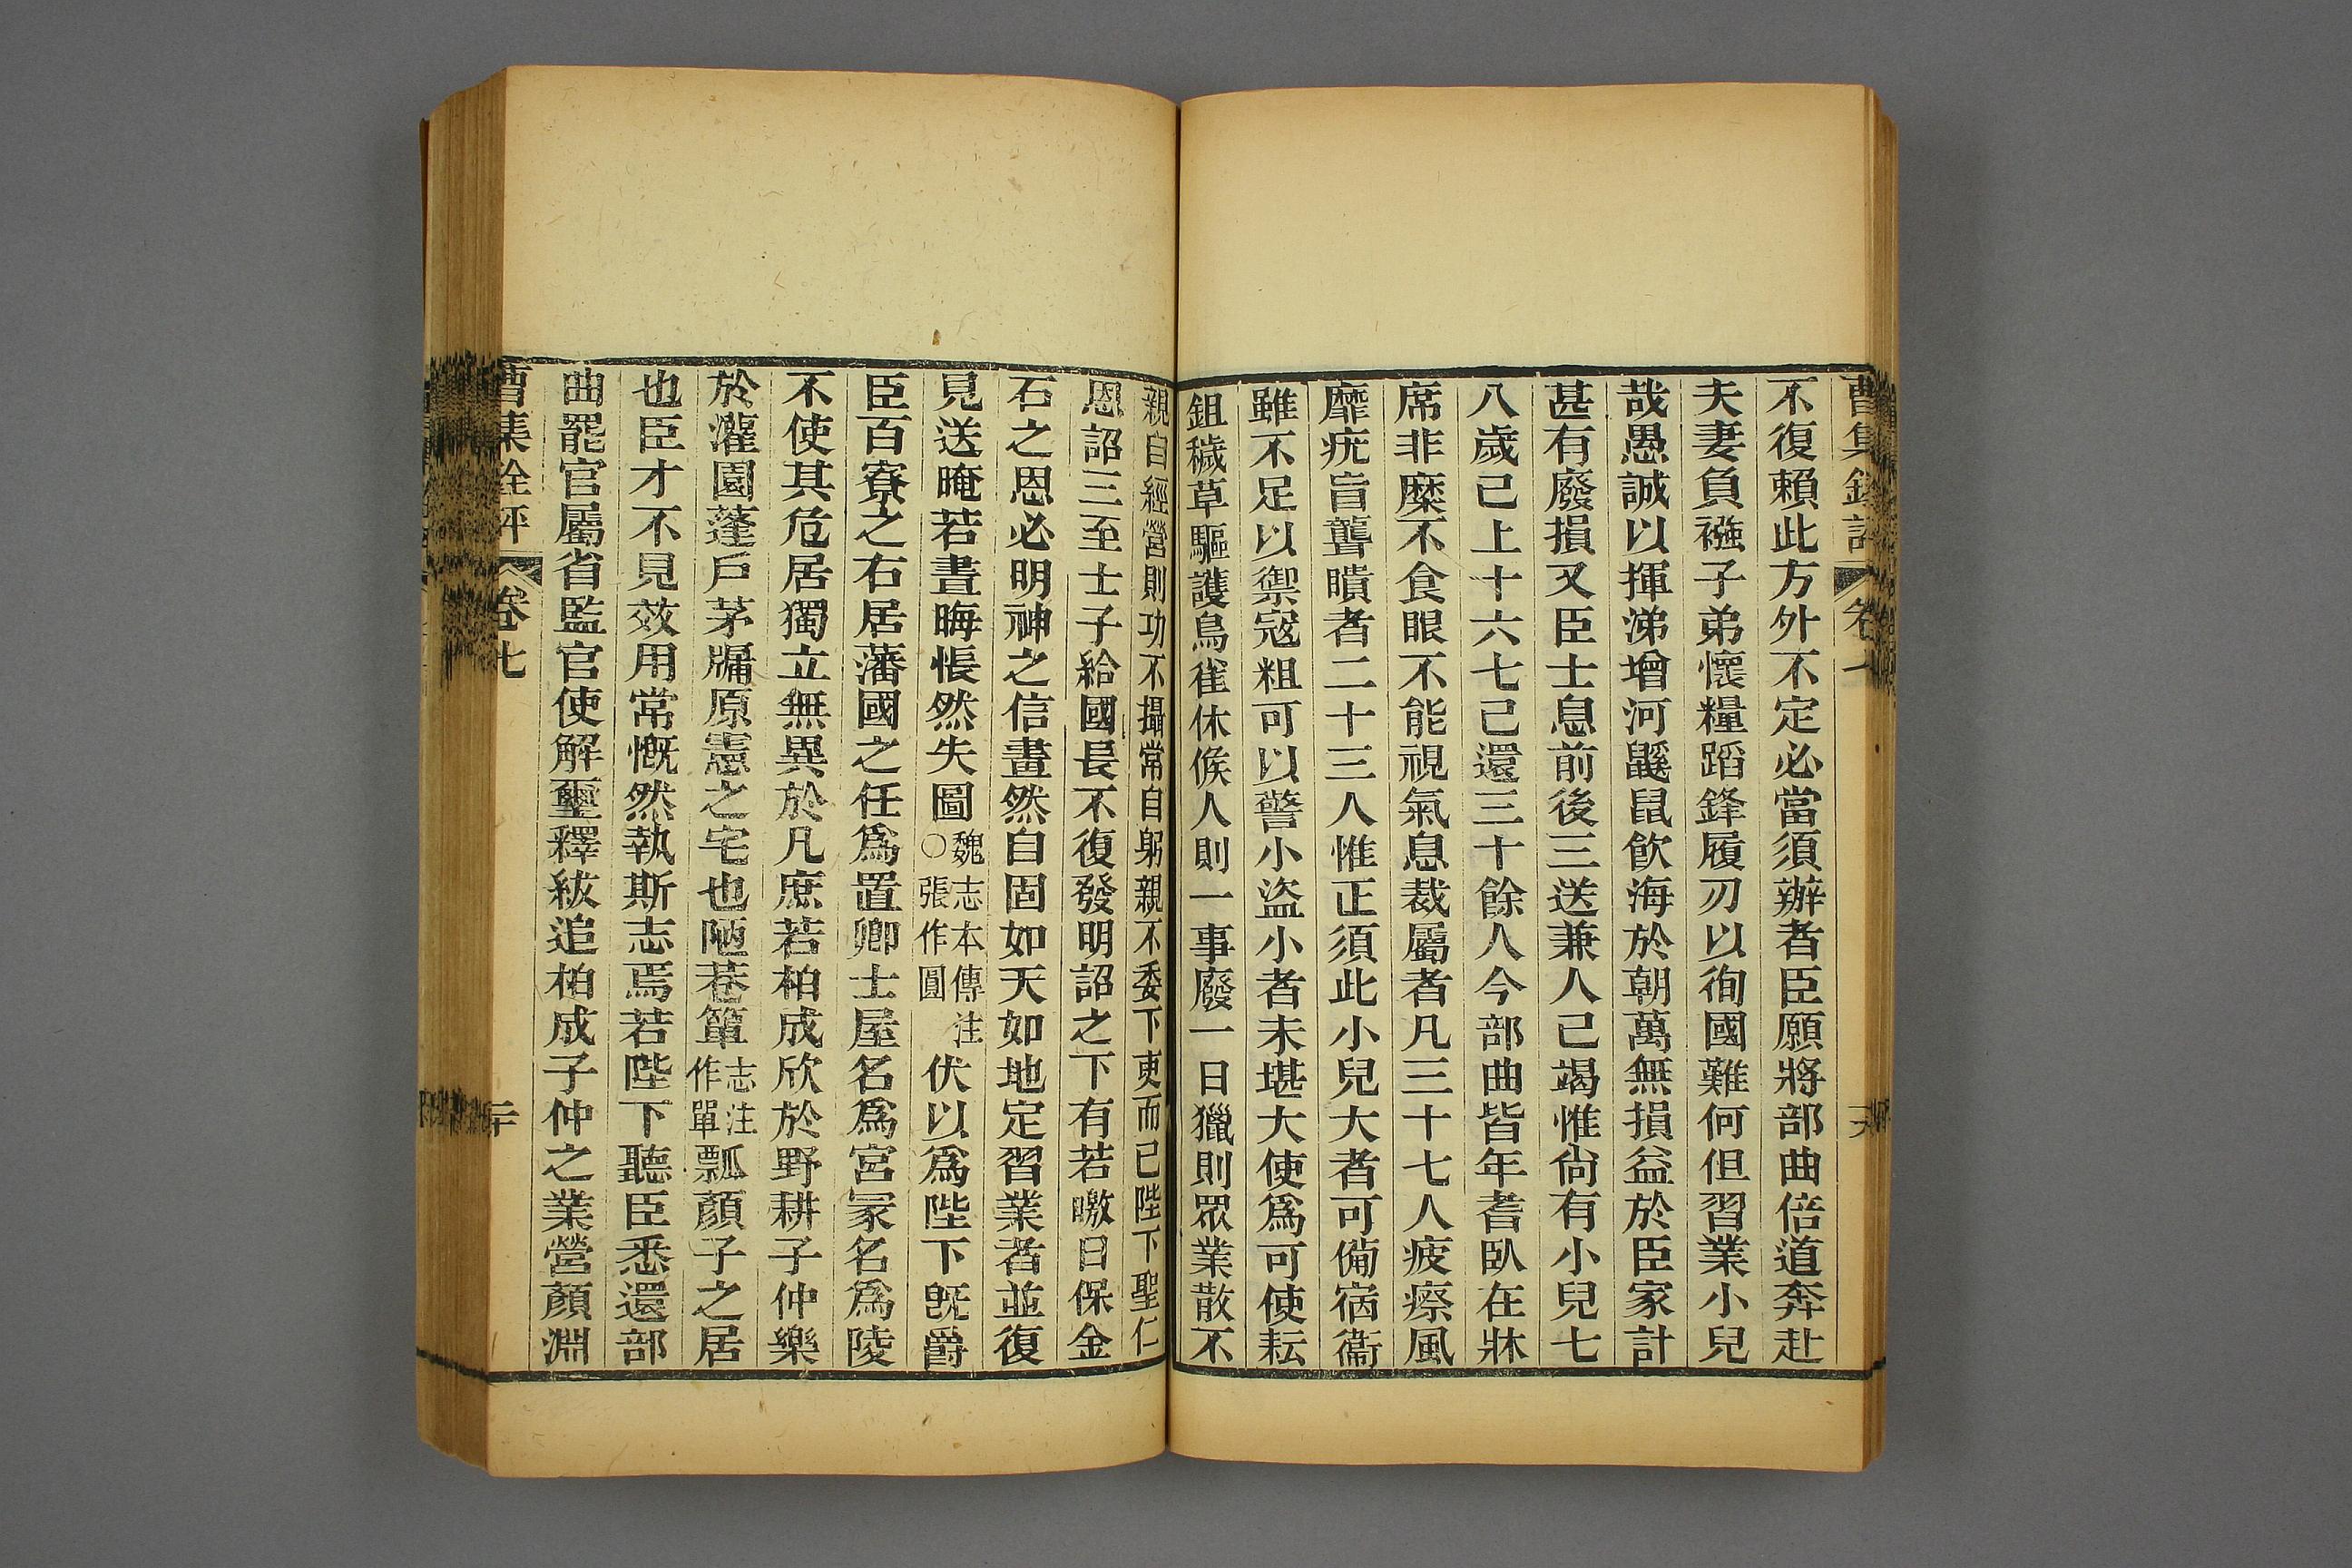 不復賴此方外不定必當須辦者臣願將部曲倍道奔赴
夫妻負襁子弟懷糧蹈鋒履刃以徇國難何但習業小兒
哉愚誠以揮涕增河鼷鼠飲海於朝萬無損益於臣家計
甚有廢損又臣士息前後三送兼人已竭惟尙有小兒七
八歲已上十六七已還三十餘人今部曲皆年耆臥在牀
席非糜不食眼不能視氣息裁屬者凡三十七人疲瘵風
靡疣盲聾聵者二十三人惟正須此小兒大者可備宿衞
雖不足以禦寇粗可以警小盜小者未堪大使爲可使耘
鉏穢草驅護鳥雀休候人則一事廢一日獵則眾業散不
親自經營則功不攝常自躬親不委下吏而已陛下聖仁
恩詔三至士子給國長不復發明詔之下有若曒日保金
石之恩必明神之信畫然自固如天如地定習業者並復
見送晻若晝晦悵然失圖魏志本傳注○張作圓伏以爲陛下旣爵
臣百寮之右居藩國之任爲置卿士屋名爲宮冢名爲陵
不使其危居獨立無異於凡庶若柏成欣於野耕子仲樂
於灌園蓬戶茅牖原憲之宅也陋巷簞志注作單瓢顏子之居
也臣才不見效用常慨然執斯志焉若陛下聽臣悉還部
曲罷官屬省監官使解璽釋紱追柏成子仲之業營顏淵
曹集詮評 卷七 二十